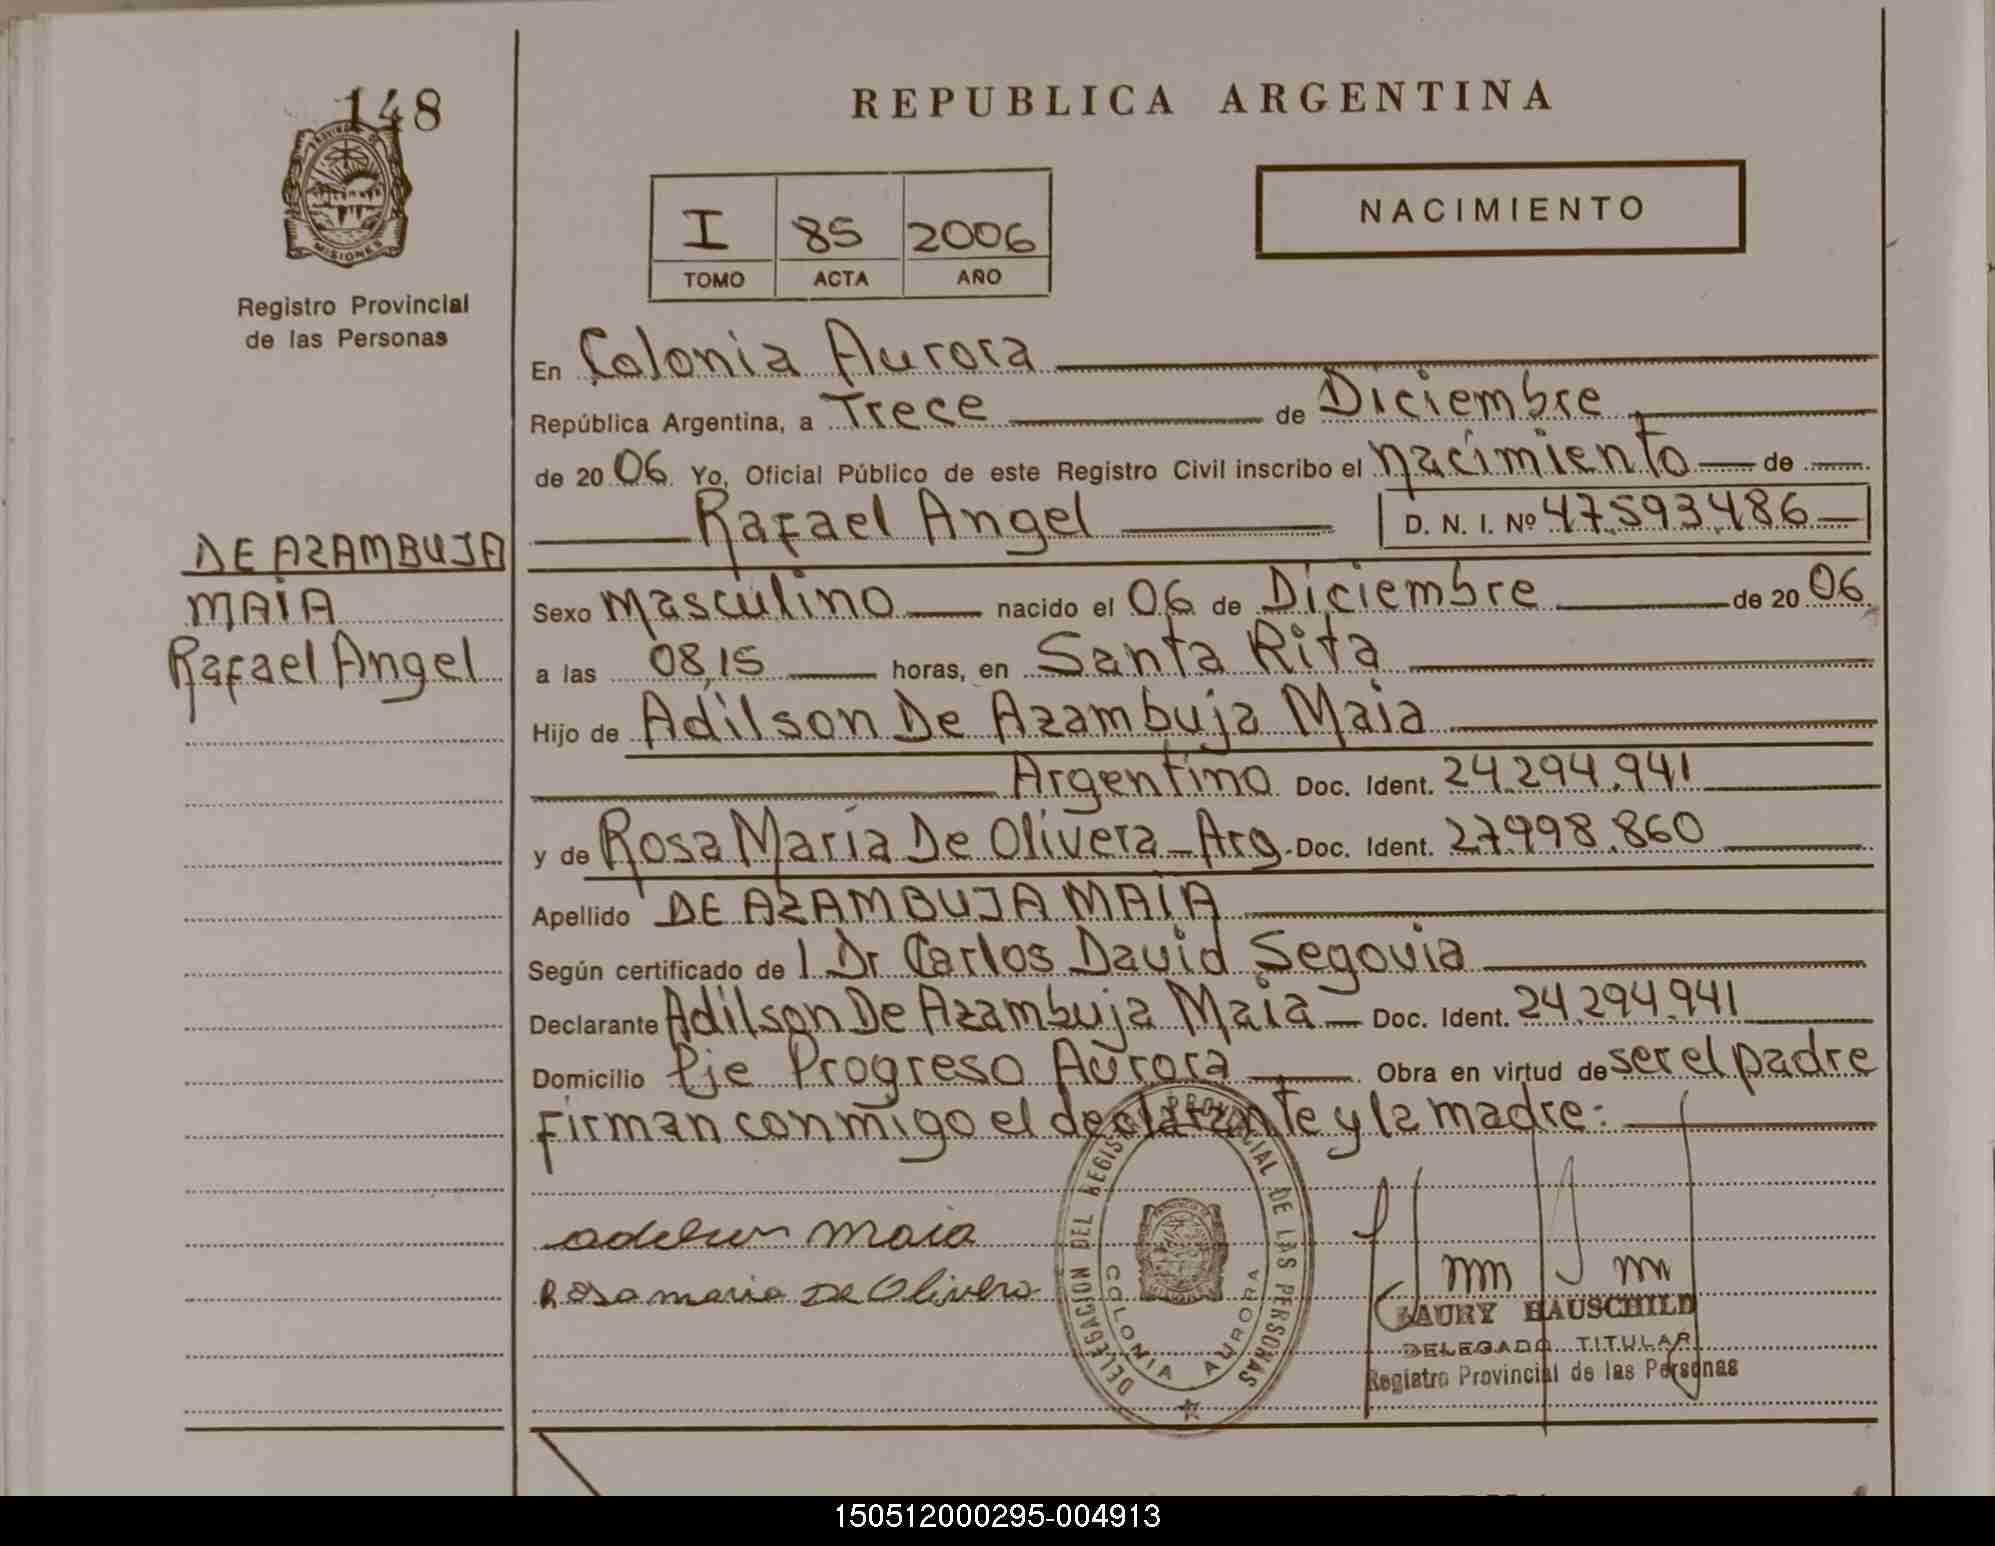 148
PROVINCIA DE
MISIONES
Registro Provincial
de las Personas
REPUBLICA ARGENTINA
I 85 2006
TOMO ACTA AÑO
NACIMIENTO
En Colonia Aurora
República Argentina, a Trece de Diciembre
de 20 06 Yo, Oficial Público de este Registro Civil inscribo el nacimiento de
Rafael Angel D. N. I. Nº 47.593.486
DE AZAMBUJA
MAIA
Rafael Angel
Sexo masculino nacido el 06 de Diciembre de 20 06
a las 08,15 horas, en Santa Rita
Hijo de Adilson De Azambuja Maia
Argentino Doc. Ident. 24.294.941
y de Rosa María De Olivera - Arg. Doc. Ident. 27.998.860
Apellido DE AZAMBUJA MAIA
Según certificado de l Dr Carlos David Segovia
Declarante Adilson De Azambuja Maia - Doc. Ident. 24.294.941
Domicilio Pje Progreso Aurora Obra en virtud de ser el padre
Firman conmigo el declarante y la madre:
maia
Rosa maria De Olivera
DELEGACION DEL REGISTRO PROVINCIAL DE LAS PERSONAS
COLONIA AURORA
LAURY HAUSCHILD
DELEGADO TITULAR
Registro Provincial de las Personas
150512000295-004913